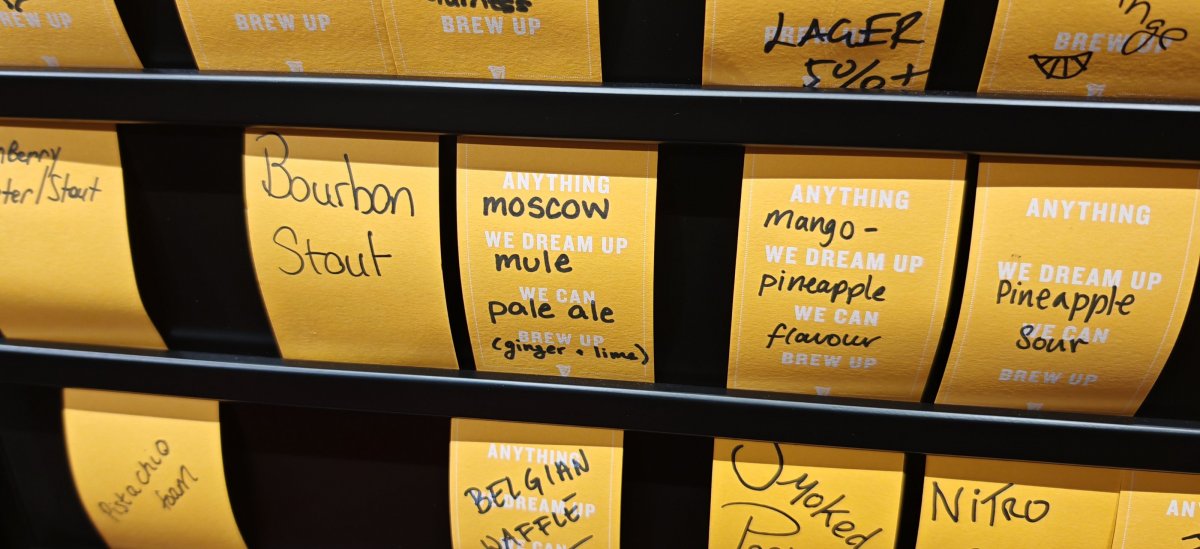 BREW UP
BREW UP
BREW UP
LAGER
5%+
BREW UP
nge
Berry
ter/Stout
Bourbon
Stout
ANYTHING
MOSCOW
WE DREAM UP
mule
WE CAN
pale ale
BREW UP
(ginger + lime)
ANYTHING
Mango-
WE DREAM UP
pineapple
WE CAN
flavour
BREW UP
ANYTHING
WE DREAM UP
Pineapple
WE CAN
Sour
BREW UP
Pistachio
ANYTHING
BELGIAN
WE DREAM UP
WAFFLE
WE CAN
Smoked
NITRO
AN